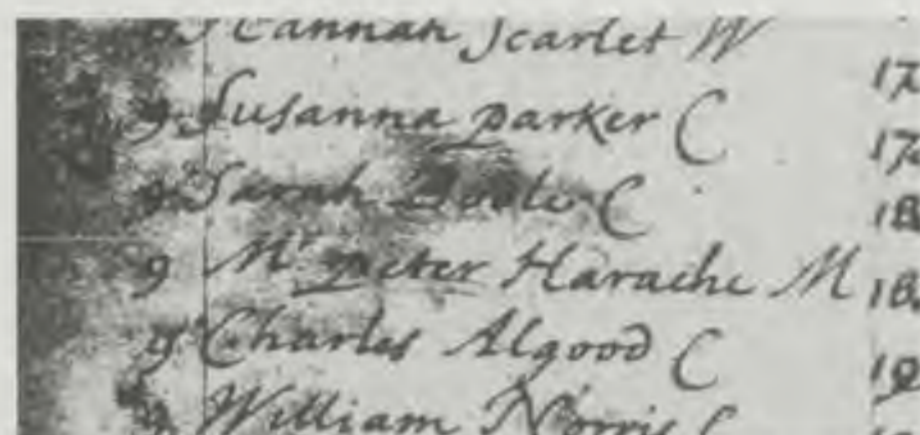 Hannah Scarlet W
17
9 Susanna parker C
17
9 Sarah C
18
9 Mr peter Harache M
18
9 Charles Algood C
19
9 William Norris C